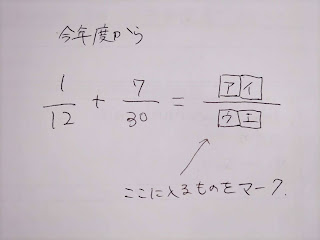 今年度から
1/12 + 7/30 = アイ/ウエ
ここに入るものをマーク.